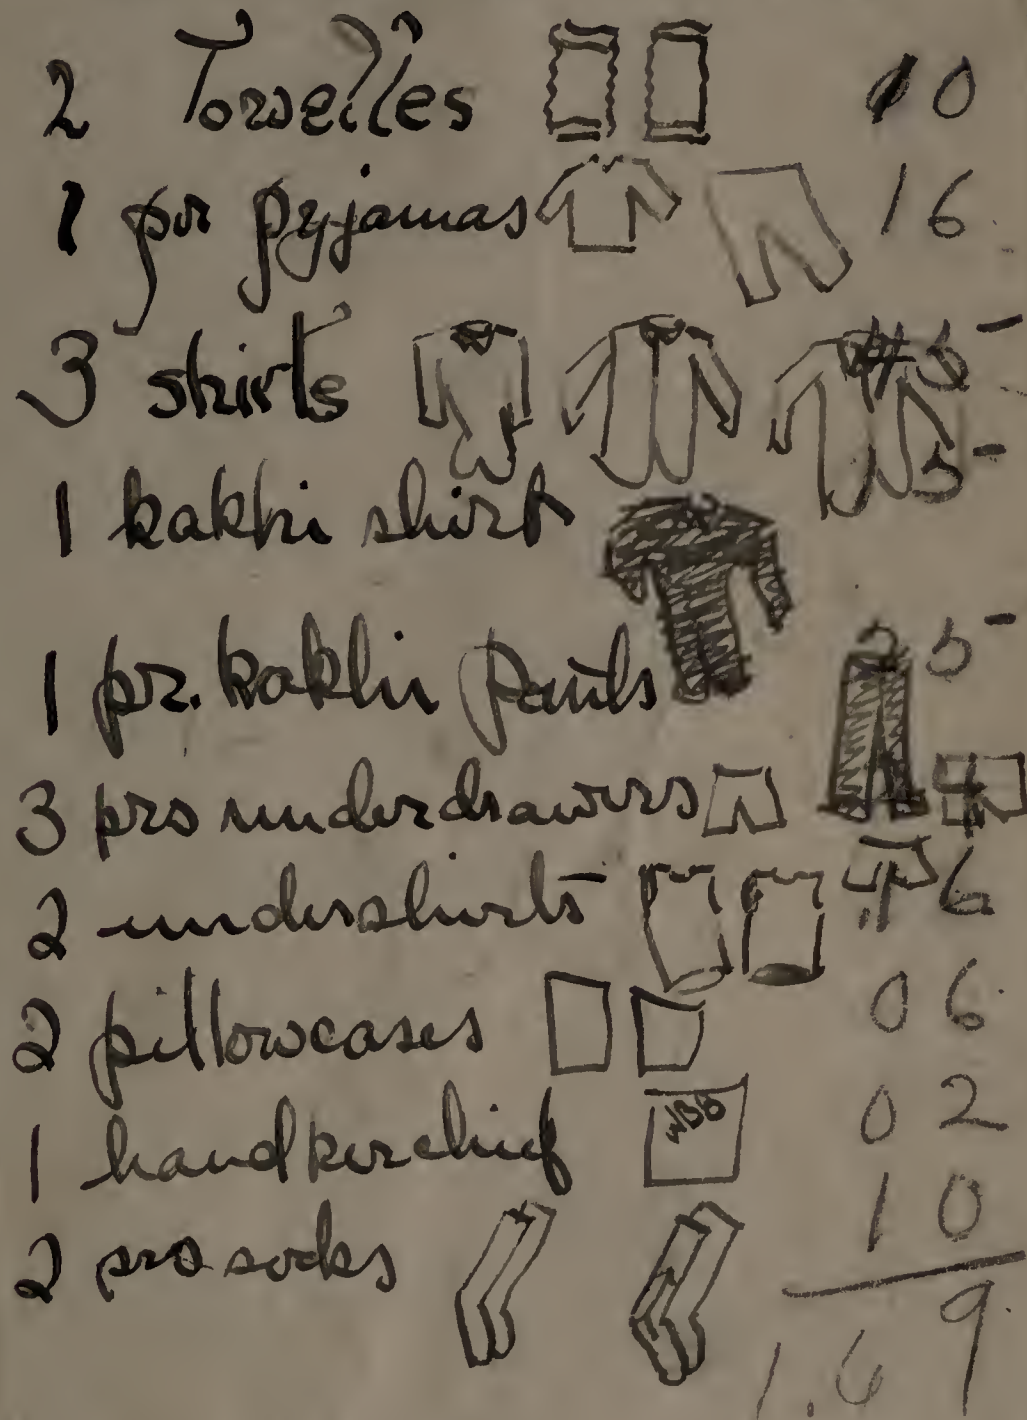 2 Towelles 10
1 pr pyjamas 16
3 shirts 45-
1 kakhi shirt 15-
1 pr. kakhi pants 5-
3 prs underdrawers
2 undershirts 16
2 pillowcases 06
1 handkerchief WBB 02
2 prs socks 10
1.69